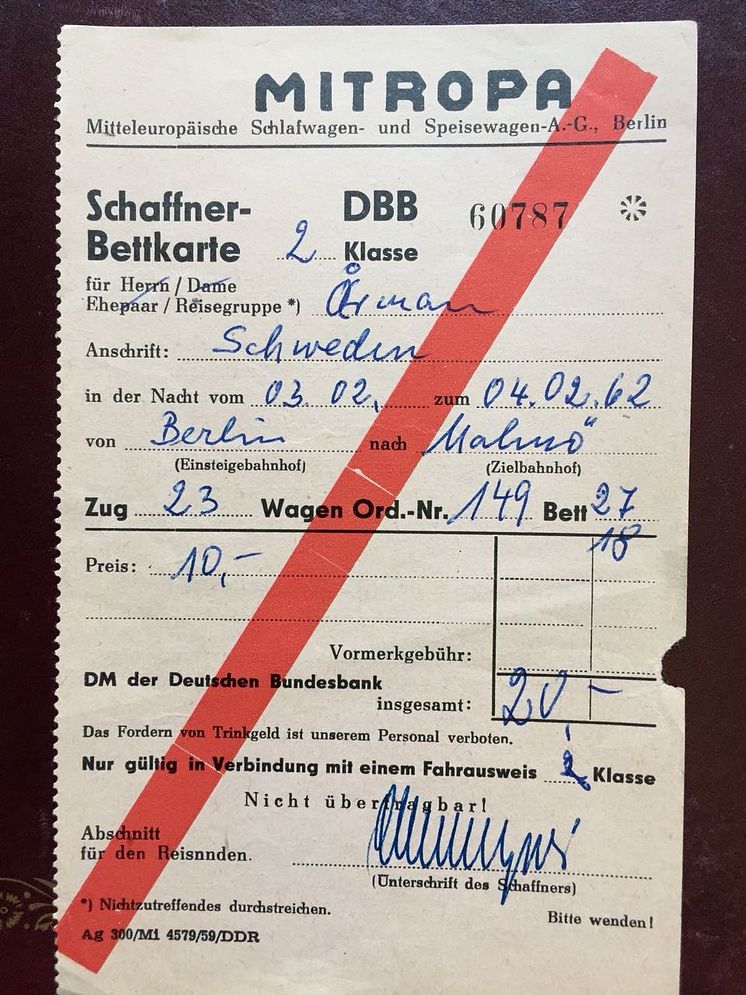 MITROPA
Mitteleuropäische Schlafwagen- und Speisewagen-A.-G., Berlin
Schaffner- DBB 60787
Bettkarte 2 Klasse
für Herrn / Dame
Ehepaar / Reisegruppe *)
Anschrift: Schweden
in der Nacht vom 03.02. zum 04.02.62
von Berlin nach Malmö
(Einsteigebahnhof) (Zielbahnhof)
Zug 23 Wagen Ord.-Nr. 149 Bett 27
18
Preis: 10,-
Vormerkgebühr:
DM der Deutschen Bundesbank
insgesamt: 20,-
Das Fordern von Trinkgeld ist unserem Personal verboten.
Nur gültig in Verbindung mit einem Fahrausweis 2 Klasse
Nicht übertragbar!
Abschnitt
für den Reisnnden.
(Unterschrift des Schaffners)
*) Nichtzutreffendes durchstreichen.
Bitte wenden!
Ag 300/Mi 4579/59/DDR